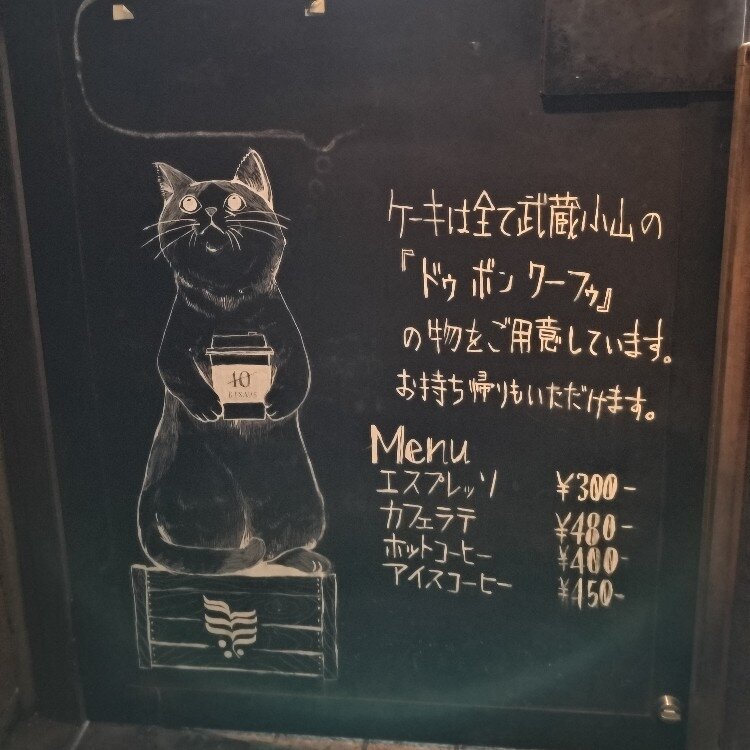 ケーキは全て武蔵小山の
『ドゥ ボン クーフゥ』
の物をご用意しています。
お持ち帰りもいただけます。
Menu
エスプレッソ ¥300-
カフェラテ ¥480-
ホットコーヒー ¥400-
アイスコーヒー ¥450-
10